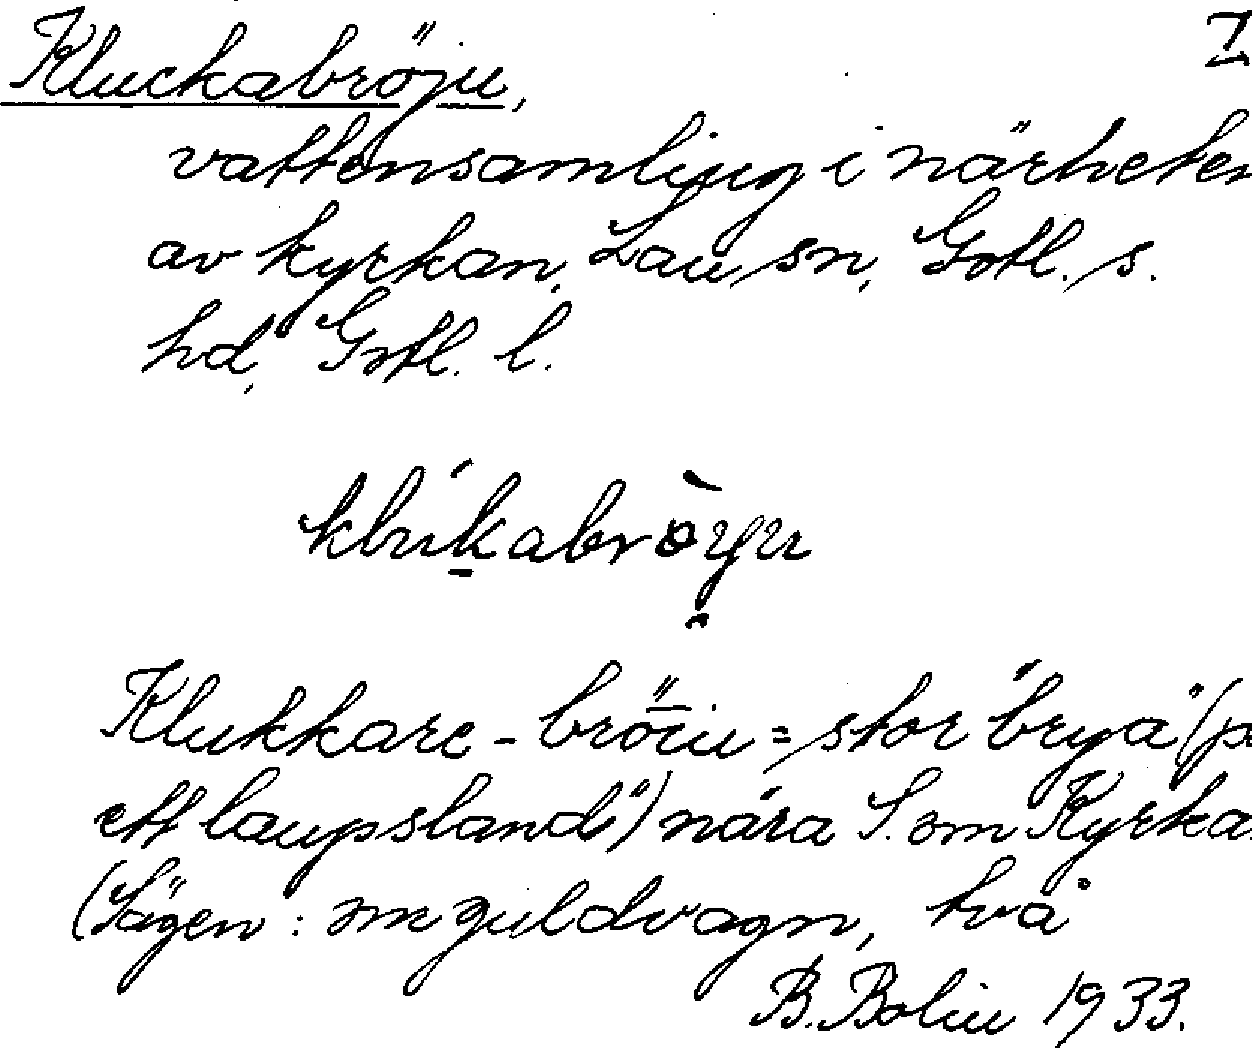 Kluckabröju, I
vattensamling i närheten
av kyrkan, Lau sn, Gotl. s.
hd, Gotl. l.
klúkabròyu
Klukkare-bröiu = stor "brya" (på
ett laupsland") nära S. om Kyrka
(Sägen: om guldvagn, två
B. Bolin 1933.